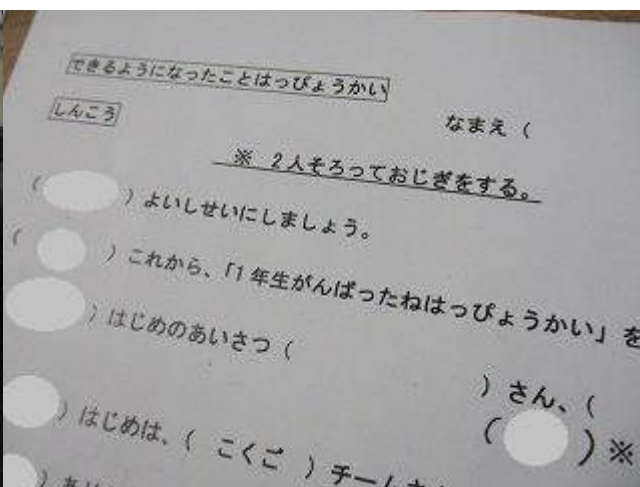 できるようになったことはっぴょうかい
しんこう
なまえ（
※ 2人そろっておじぎをする。
（ ）よいしせいにしましょう。
（ ）これから、「1年生がんばったねはっぴょうかい」を
）はじめのあいさつ（ ）さん、（
（ ）※
）はじめは、（ こくご ）チーム